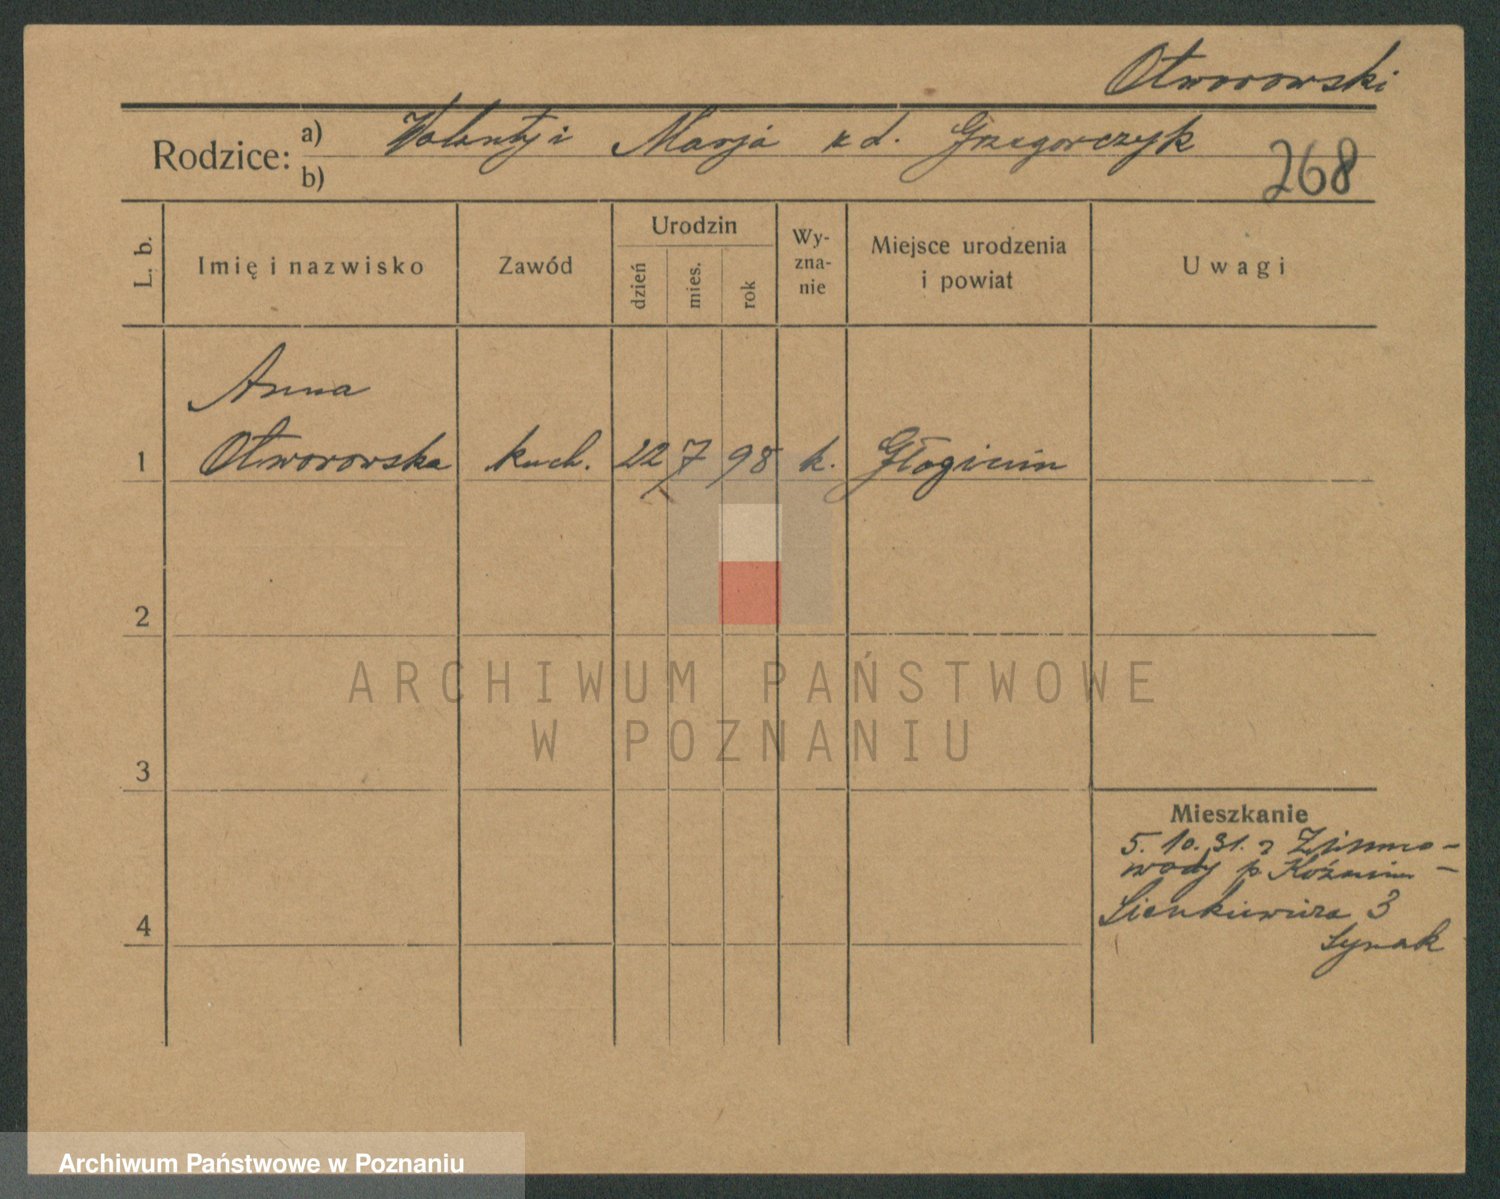 Otworowski
Rodzice: a) Walenty i Marja z d. Grzegorczyk
b)
268
L. b.
Imię i nazwisko
Zawód
Urodzin
dzień
mies.
rok
Wy-
zna-
nie
Miejsce urodzenia
i powiat
Uwagi
Anna
1 Otworowska kuch. 22 7 98 k.
2
3
4
Mieszkanie
5. 10. 31. z Zimno-
wody p. Koźmin
Sienkiewicza 3
ARCHIWUM PAŃSTWOWE
W POZNANIU
Archiwum Państwowe w Poznaniu